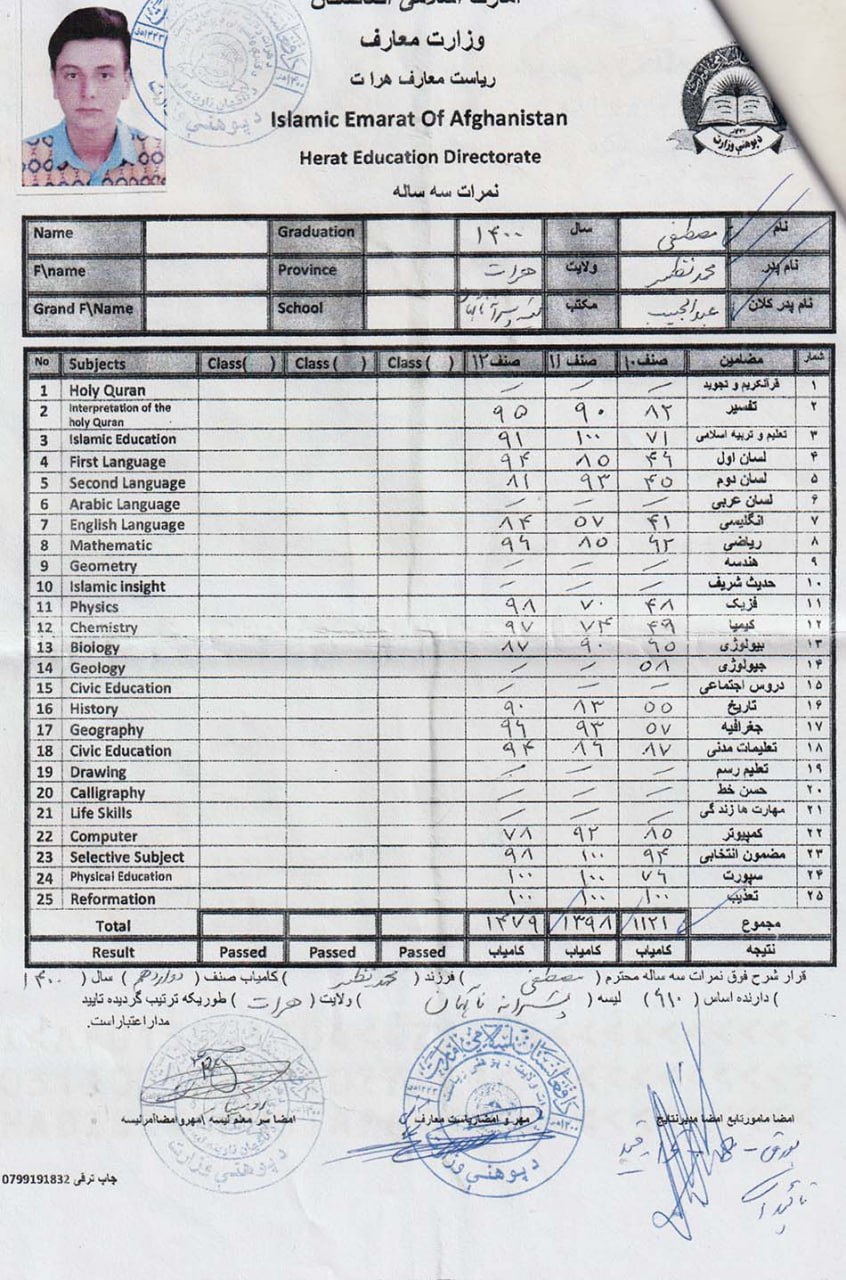 امارت اسلامی افغانستان
وزارت معارف
ریاست معارف هرات
Islamic Emarat Of Afghanistan
Herat Education Directorate
نمرات سه ساله
د پوهنې وزارت
Name Graduation ۱۴۰۰ سال مصطفی نام
F\name Province هرات ولایت محمد نظیر نام پدر
Grand F\Name School مکتب عبدالمجیب نام پدر کلان
No Subjects Class( ) Class ( ) Class ( ) صنف ۱۲ صنف ۱۱ صنف ۱۰ مضامین شمار
1 Holy Quran — — — قرآنکریم و تجوید ۱
2 Interpretation of the holy Quran ۹۵ ۹۰ ۸۲ تفسیر ۲
3 Islamic Education ۹۱ ۱۰۰ ۷۱ تعلیم و تربیه اسلامی ۳
4 First Language ۹۴ ۸۵ ۴۶ لسان اول ۴
5 Second Language ۸۱ ۹۳ ۴۵ لسان دوم ۵
6 Arabic Language — — — لسان عربی ۶
7 English Language ۸۴ ۵۷ ۴۱ انگلیسی ۷
8 Mathematic ۹۶ ۸۵ ۶۲ ریاضی ۸
9 Geometry — — — هندسه ۹
10 Islamic insight — — — حدیث شریف ۱۰
11 Physics ۹۸ ۷۰ ۴۸ فزیک ۱۱
12 Chemistry ۹۷ ۷۴ ۴۹ کیمیا ۱۲
13 Biology ۸۷ ۹۰ ۶۵ بیولوژی ۱۳
14 Geology — — ۵۸ جیولوژی ۱۴
15 Civic Education — — — دروس اجتماعی ۱۵
16 History ۹۰ ۸۳ ۵۵ تاریخ ۱۶
17 Geography ۹۶ ۹۳ ۵۷ جغرافیه ۱۷
18 Civic Education ۹۴ ۸۶ ۸۷ تعلیمات مدنی ۱۸
19 Drawing — — — تعلیم رسم ۱۹
20 Calligraphy — — — حسن خط ۲۰
21 Life Skills — — — مهارت ها زند گی ۲۱
22 Computer ۷۸ ۹۲ ۸۵ کمپیوتر ۲۲
23 Selective Subject ۹۸ ۱۰۰ ۹۴ مضمون انتخابی ۲۳
24 Physical Education ۱۰۰ ۱۰۰ ۷۶ سپورت ۲۴
25 Reformation ۱۰۰ ۱۰۰ ۱۰۰ تعذیب ۲۵
Total ۱۴۷۹ ۱۳۹۸ ۱۱۲۱ مجموع
Result Passed Passed Passed کامیاب کامیاب کامیاب نتیجه
قرار شرح فوق نمرات سه ساله محترم ( مصطفی ) فرزند ( محمد نظیر ) کامیاب صنف ( دوازدهم ) سال ( ۱۴۰۰
) دارنده اساس ( ۶۱۰ ) لیسه ( ) ولایت ( هرات ) طوریکه ترتیب گردیده تایید
مداراعتباراست.
امضا مامورتابع امضا مدیرنتایج مهر و امضاریاست معارف امضا سر معلم لیسه امهروامضاآمرلیسه
چاپ ترقی 0799191832